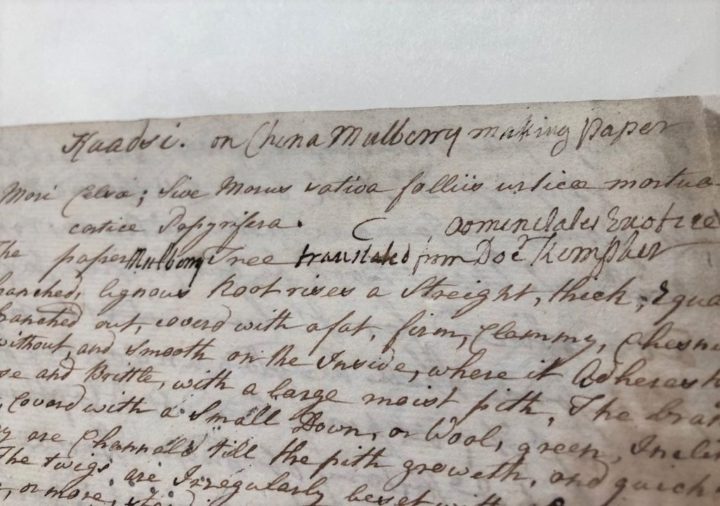 Kaadsi. on China Mulberry making Paper
Mori Celsa; Sive Morus sativa folliis urticæ mortua
cortice Papyrifera.
The paper Mulberry Tree translated from Doct Kempher
branched, lignous Root rises a Streight, thick, Equa
branched out, coverd with a fat, firm, Clammy, Chesnu
without, and Smooth on the Inside, where it Adheres
and Brittle, with a large moist pith, The bran
Coverd with a Small Down, or Wool, green, Incli
are Channald till the pith groweth, and quick
The twigs are Irregularly beset with
or more